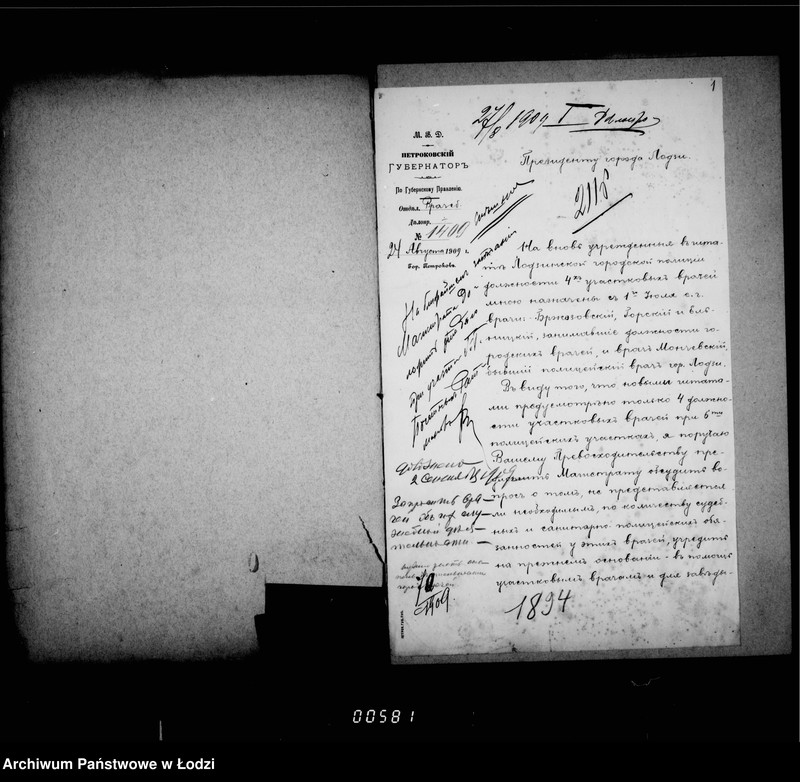 1
27/8 1909 I
М. В. Д.
ПЕТРОКОВСКІЙ
ГУБЕРНАТОРЪ
По Губернскому Правленію.
Отдѣл. Врачеб.
Дѣлопр.
№ 1400
24 Августа 1909 г.
Гор. Петроковъ.
Президенту города Лодзи.
2118
На вновь учрежденныя въ шта-
тѣ Лодзинской городской полиціи
должности 4хъ участковыхъ врачей
мною назначены съ 1го Іюля с.г.
врачи: Бржозовскій, Горскій и
занимавшіе должности го-
родскихъ врачей, и врачъ
бывшій полицейскій врачъ гор. Лодзи.
Въ виду того, что новыми штата-
ми предусмотрѣно только 4 должно-
сти участковыхъ врачей при 6ти
полицейскихъ участкахъ, я поручаю
Вашему Превосходительству пре-
дложить Магистрату обсудить во-
просъ о томъ, не представляется
ли необходимымъ, по количеству судеб-
ныхъ и санитарно-полицейскихъ обя-
занностей у этихъ врачей, учредить
на прежнемъ основаніи - въ помощь
участковымъ врачамъ и для завѣды-
На ближайшемъ засѣданіи
Магистрата
при участіи
Почетныхъ
2
Запросить вра-
чей объ ихъ слу-
жебной дѣя-
тельности.
1909
1894
00581
Archiwum Państwowe w Łodzi